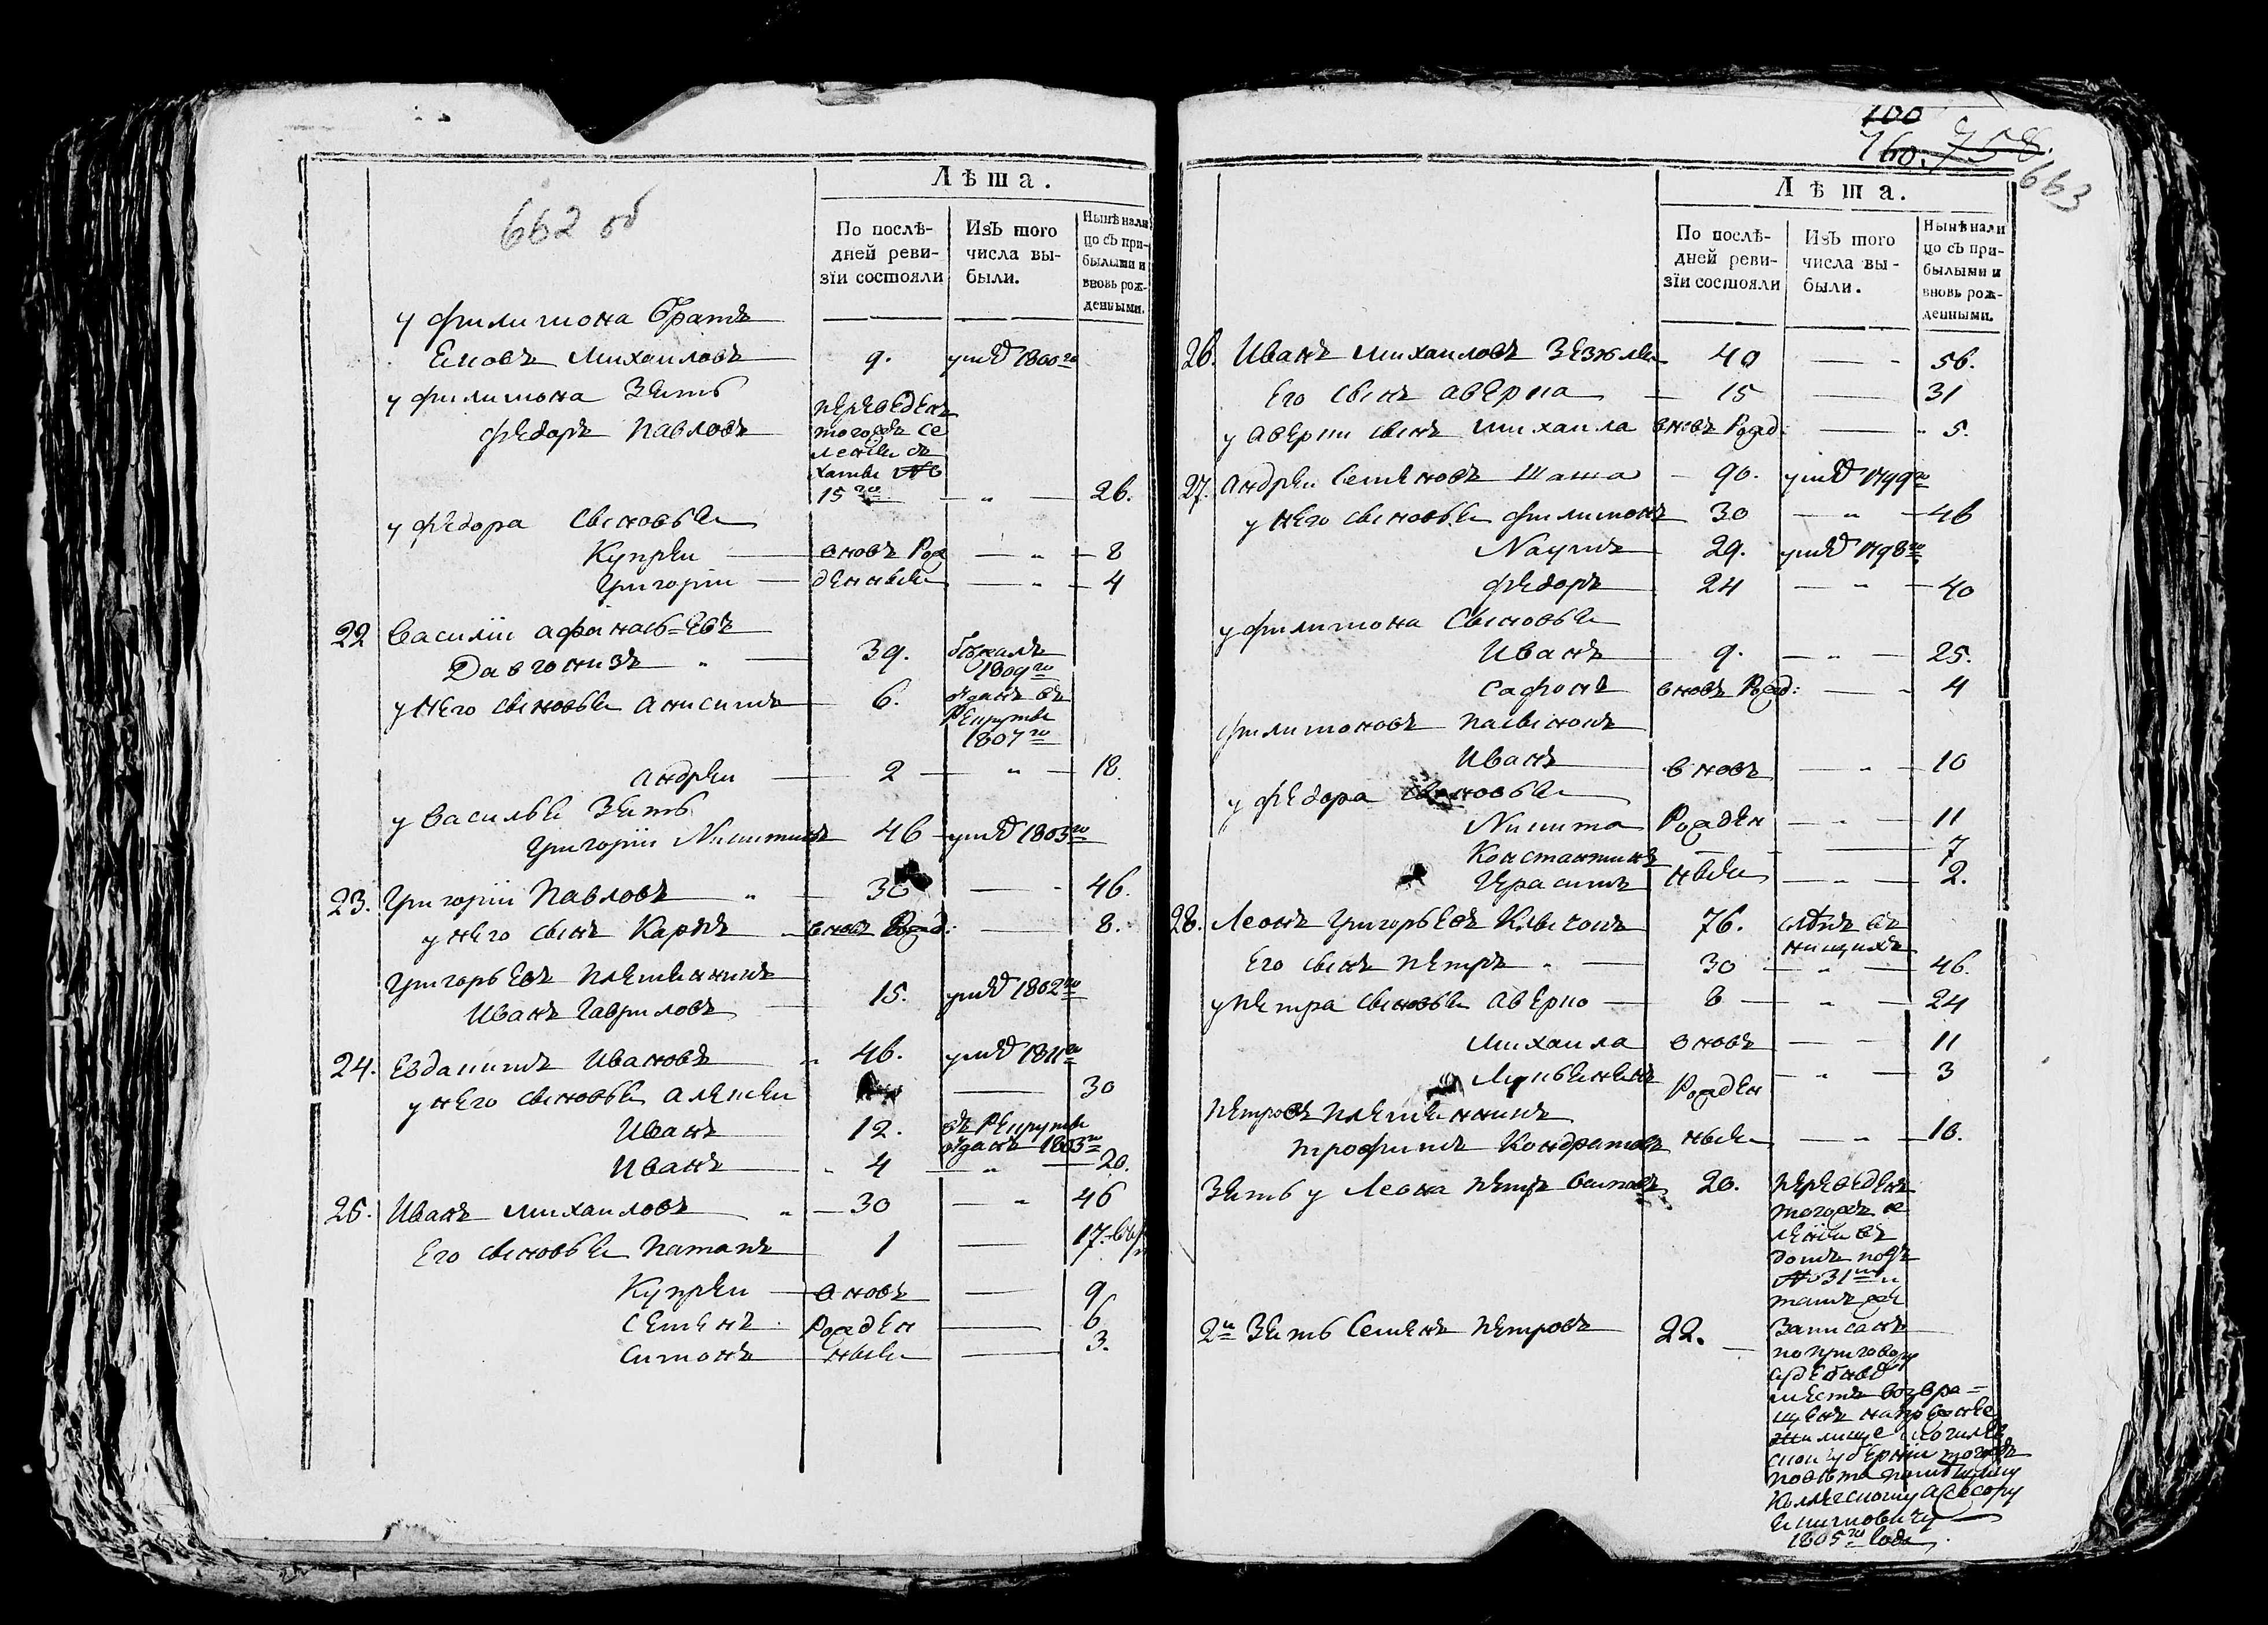 662 об
Лѣта.
По послѣ-
дней реви-
зїи состояли
Изъ того
числа вы-
были.
Нынѣ нали
цо съ при-
былыми и
вновь рож-
денными.
у филимона братъ
михаиловъ 9. умеръ 1800го
у филимона зять
федоръ павловъ переведенъ
тогожъ се
ления въ
хаты №
15го — „ — 26.
у федора сыновья
Купрей вновь Рож — „ — 8
Григорїи денные — „ — 4
22 Василїи афанасьевъ
39. бежалъ
1809го
у него сыновья анисимъ 6. отданъ въ
Рекруты
1807го
андреи 2 — „ — 18.
у василья зять
Григорїи Никитинъ 46 умеръ 1803го
23. Григорїи Павловъ „ 30 — 46.
у него сынъ Карпъ вновь Рожд: — 8.
Григорьевъ племянникъ
Иванъ Гавриловъ 15. умеръ 1802го
24. Евдакимъ Ивановъ „ 46. умеръ 1811го
у него сыновья алексеи — 30
Иванъ 12. въ Рекруты
отданъ 1803го
Иванъ „ 4 — „ — 20.
25. Иванъ михаиловъ „ 30 — „ 46
Его сыновья Патапъ 1 — 17.
Купреи вновь — 9
семенъ Рожден — 6
симонъ ные — 3.
100
760. 758.
663
Лѣта.
По послѣ-
дней реви-
зїи состояли
Изъ того
числа вы-
были.
Нынѣ нали
цо съ при-
былыми и
вновь рож-
денными.
26. Иванъ михаиловъ 40 — 56.
Его сынъ аверка 15 — 31
у аверки сынъ михаила вновь Рожд: — „ 5.
27. андреи семеновъ 90. умеръ 1799го
у него сыновья филимонъ 30 — „ — 46
Наумъ 29. умеръ 1798го
федоръ 24 — „ — 40
у филимона сыновья
Иванъ 9. — „ — 25.
сафонъ вновь Рожд: — „ 4
филимоновъ пасынокъ
Иванъ вновь — „ — 10
у федора сыновья
Никита Рожден — „ — 11
Константинъ — 7
Герасимъ ные — „ — 2.
28. Леонъ Григорьевъ 76. слѣпъ въ
нищихъ
Его сынъ петръ „ 30 — „ — 46.
у петра сыновья аверко 8 — „ — 24
михаила вновь — „ 11
Рожден — „ — 3
петровъ племянникъ
трофимъ Кондратовъ ные — „ — 10.
зять у Леона петръ 20. переведенъ
тогожъ се
ления въ
домъ подъ
№ 31мъ и
тамъ же
2й зять семенъ петровъ 22. — записанъ
по приговору
возвра-
щенъ на прежнее
жилище могилев
скои губернии тогожъ
повѣта помѣщику
колежскому асесору
1805го года.